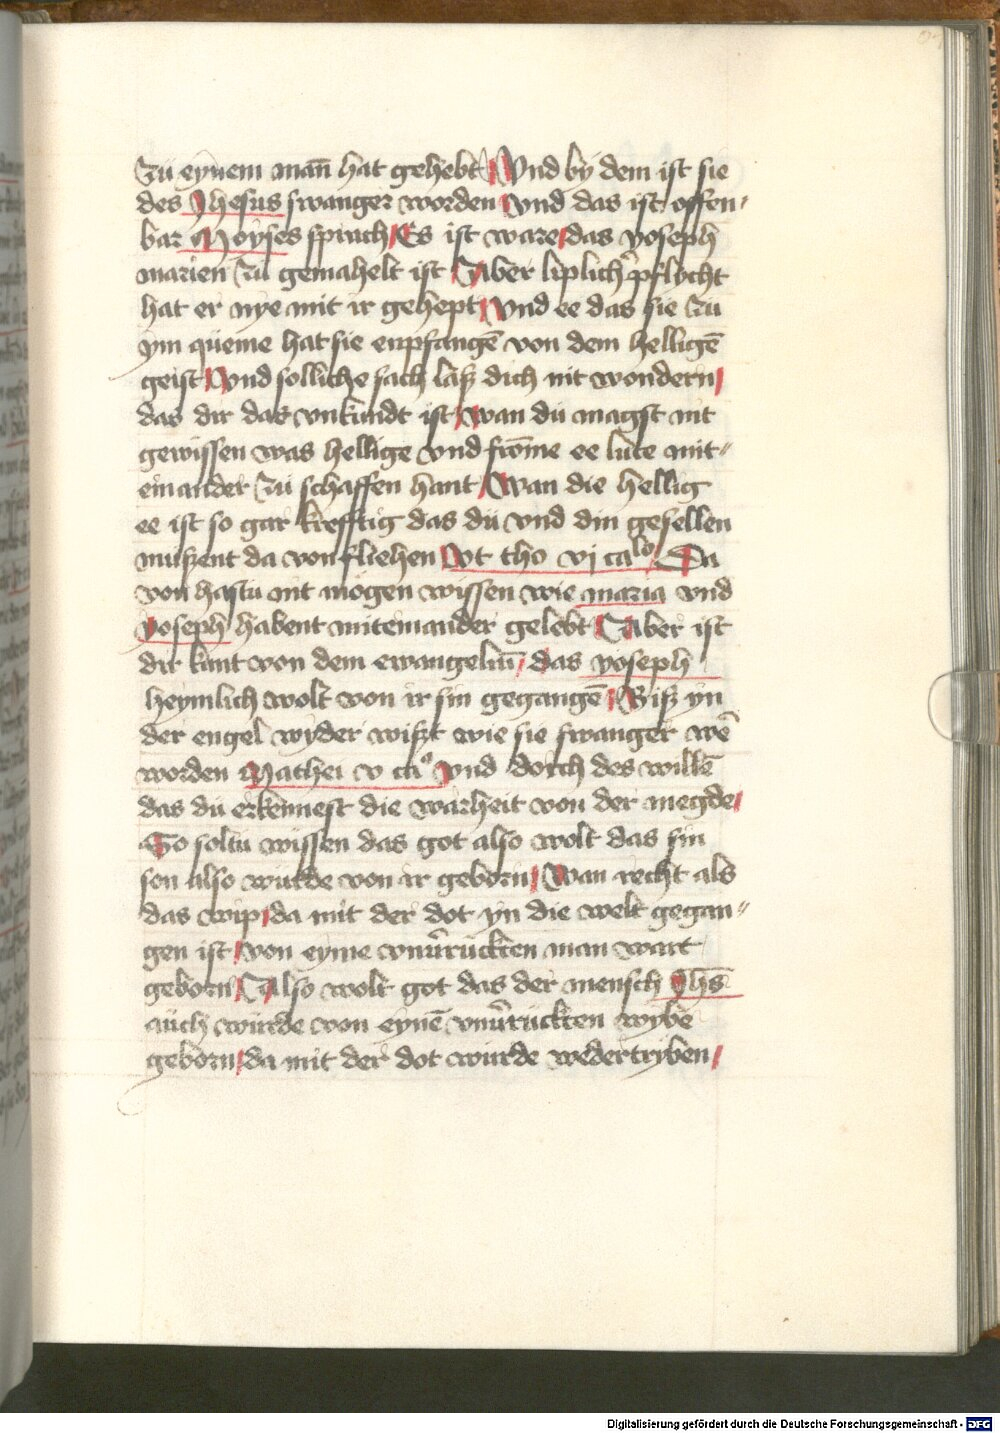 Zu eynem man̄ hat gehebt Vnd by dem ist sie
des Jhesus swanger worden Vnd das ist offen-
bar Moyses sprach Es ist ware das yoseph
marien zu gemahelt ist Aber liplich pflycht
hat er nye mit ir gehept Vnd ee das sie zu
ym queme hat sie enpfangē von dem helligē
geist Vnd solliche sach laß dich nit wondern
das dir das vnkundt ist wan du magst nit
gewissen was hellige vnd frōme ee lute mit-
einander zu schaffen hant Wan die hellig
ee ist so gar krefftig das du vnd din gesellen
mußent da von fliehen Vt tho vj ca⁰ Da
von hastu nit mogen wissen wie maria vnd
yoseph habent miteinander gelebt Aber ist
dir kunt von dem ewangeliū das yoseph
heymlich wolt von ir sin gegangē Biß yn
der engel wyder wißt wie sie swanger wē
worden Mathei v ca⁰ Vnd dorch des willē
das du erkennest die warheit von der megde
So soltu wissen das got also wolt das sin
son also wurde von ir geborn Wan recht als
das wip da mit der dot yn die welt gegan-
gen ist von eyme vnv̄ruckten man wart
geborn Also wolt got das der mensch Jhs̄
auch wurde von eynē vnv̄ruckten wybe
geborn da mit der dot wurde wedertryben
Digitalisierung gefördert durch die Deutsche Forschungsgemeinschaft - DFG